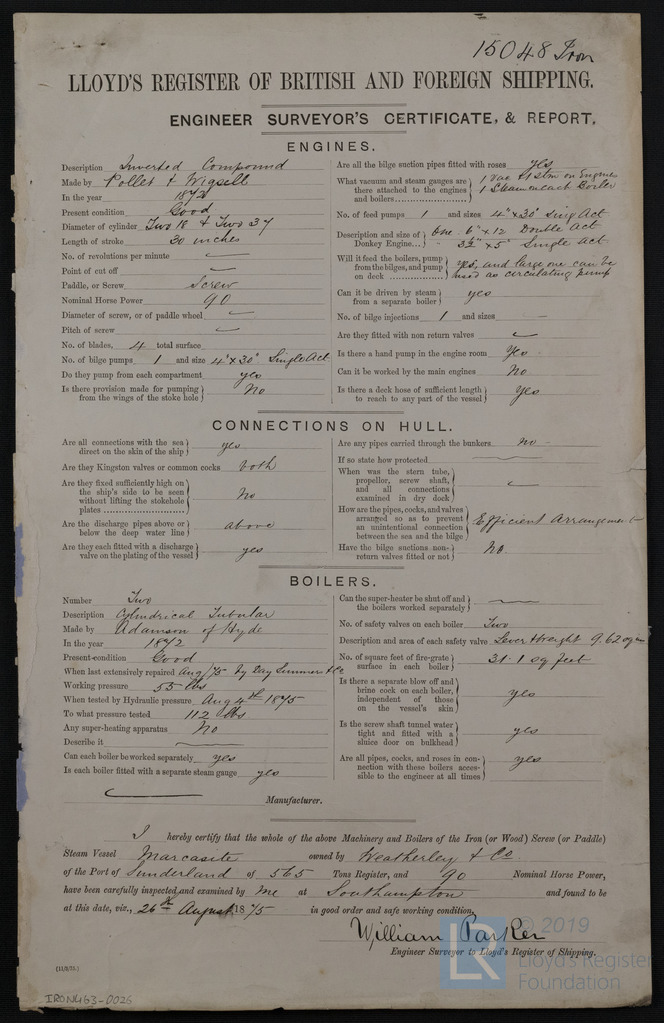 15048 Iron
LLOYD'S REGISTER OF BRITISH AND FOREIGN SHIPPING.
ENGINEER SURVEYOR'S CERTIFICATE, & REPORT,
ENGINES.
Description Inverted Compound
Made by Pollet & Wigzell
In the year 1872
Present condition Good
Diameter of cylinder Two 18 & Two 34
Length of stroke 30 inches
No. of revolutions per minute
Point of cut off
Paddle, or Screw Screw
Nominal Horse Power 90
Diameter of screw, or of paddle wheel
Pitch of screw
No. of blades, 4 total surface
No. of bilge pumps 1 and size 4" x 30" Single Act
Do they pump from each compartment yes
Is there provision made for pumping from the wings of the stoke hole } No
Are all the bilge suction pipes fitted with roses Yes
What vacuum and steam gauges are there attached to the engines and boilers } 1 Vac & 1 Stm on Engines
1 Steam on each Boiler
No. of feed pumps 1 and sizes 4" x 30" Sing Act
Description and size of Donkey Engine } One 6" x 12 Double Act
" 3½" x 5" Single Act
Will it feed the boilers, pump from the bilges, and pump on deck } Yes, and large one can be
used as circulating pump
Can it be driven by steam from a separate boiler } yes
No. of bilge injections 1 and sizes
Are they fitted with non return valves
Is there a hand pump in the engine room Yes
Can it be worked by the main engines No
Is there a deck hose of sufficient length to reach to any part of the vessel } Yes
CONNECTIONS ON HULL.
Are all connections with the sea direct on the skin of the ship } yes
Are they Kingston valves or common cocks both
Are they fixed sufficiently high on the ship's side to be seen without lifting the stokehole plates } No
Are the discharge pipes above or below the deep water line } above
Are they each fitted with a discharge valve on the plating of the vessel } yes
Are any pipes carried through the bunkers no
If so state how protected
When was the stern tube, propeller, screw shaft, and all connections examined in dry dock }
How are the pipes, cocks, and valves arranged so as to prevent an unintentional connection between the sea and the bilge } Efficient Arrangement
Have the bilge suctions non-return valves fitted or not } No.
BOILERS.
Number Two
Description Cylindrical Tubular
Made by Adamson of Hyde
In the year 1872
Present condition Good
When last extensively repaired Aug /75 by Day Summers & Co
Working pressure 55 lbs
When tested by Hydraulic pressure Aug 4th 1875
To what pressure tested 112 lbs
Any super-heating apparatus No
Describe it
Can each boiler be worked separately yes
Is each boiler fitted with a separate steam gauge yes
Can the super-heater be shut off and the boilers worked separately }
No. of safety valves on each boiler Two
Description and area of each safety valve Lever Weight 9.62 sq in
No. of square feet of fire-grate surface in each boiler } 31.1 sq feet
Is there a separate blow off and brine cock on each boiler, independent of those on the vessel's skin } yes
Is the screw shaft tunnel water tight and fitted with a sluice door on bulkhead } yes
Are all pipes, cocks, and roses in connection with these boilers accessible to the engineer at all times } yes
Manufacturer.
I hereby certify that the whole of the above Machinery and Boilers of the Iron (or Wood) Screw (or Paddle)
Steam Vessel Marcasite owned by Weatherley & Co
of the Port of Sunderland of 565 Tons Register, and 90 Nominal Horse Power,
have been carefully inspected and examined by me at Southampton and found to be
at this date, viz., 26th August 1875 in good order and safe working condition,
William Parker
Engineer Surveyor to Lloyd's Register of Shipping.
IRON463-0026
© 2019
LR
Lloyd's Register
Foundation